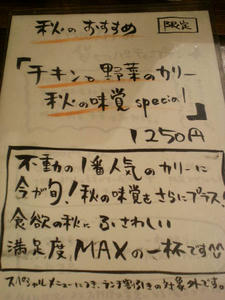 秋のおすすめ
限定
「チキンと野菜のカリー
秋の味覚special」
1250円
不動の1番人気のカリーに
今が旬!秋の味覚をさらにプラス!
食欲の秋にふさわしい
満足度MAXの一杯です^^
スペシャルメニューにつき、ランチ割引きの対象外です。